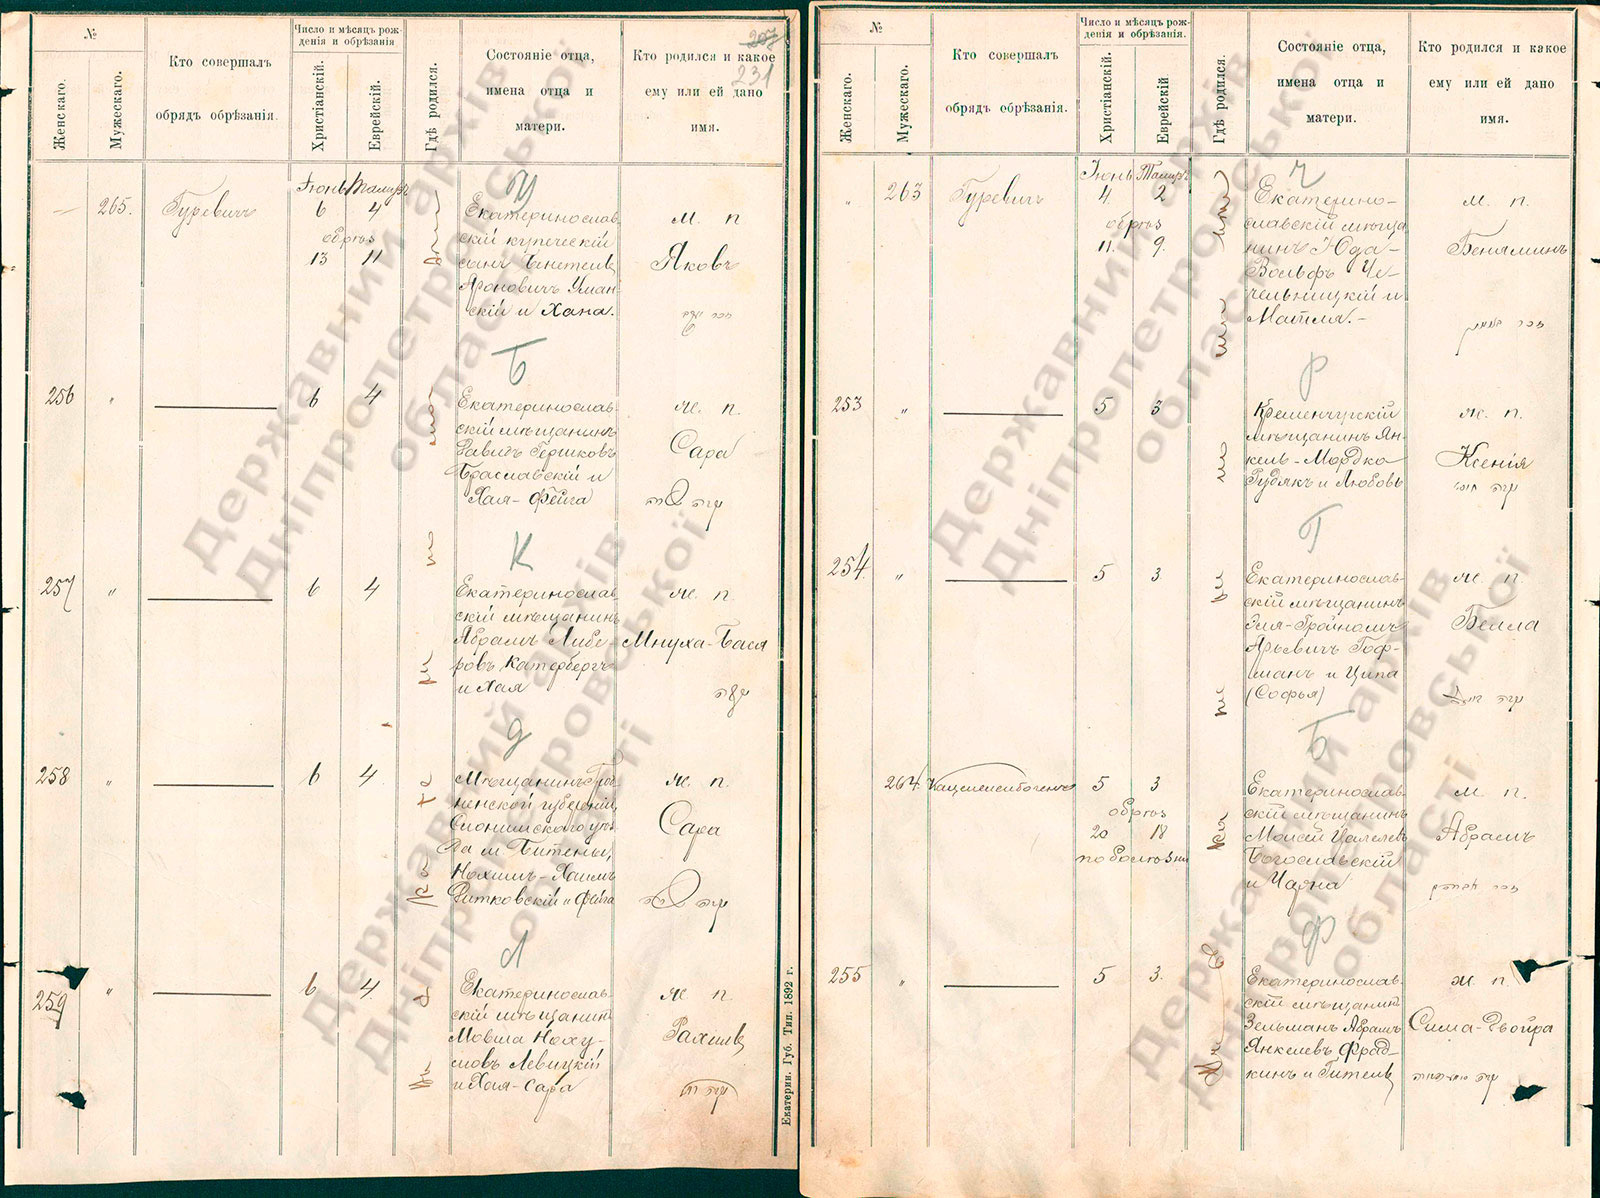 №
Женскаго.
Мужескаго.
Кто совершалъ
обрядъ обрѣзанія.
Число и мѣсяцъ рож-
денія и обрѣзанія
Христіанскій.
Еврейскій.
Гдѣ родился.
Состояніе отца,
имена отца и
матери.
Кто родился и какое
ему или ей дано
имя.
257
231
265.
Гуревичъ
Іюнь Тамузъ
6 4
обрѣз
13 11
У
Екатеринослав-
скій купеческій
сынъ
Ароновичъ Уман-
скій и Хана.
м. п.
Яковъ
256 "
6 4
Б
Екатеринослав-
скій мѣщанинъ
Давидъ Гершковъ
Браславскій и
Хая-Фейга
ж. п.
Сара
257 "
6 4
К
Екатеринослав-
скій мѣщанинъ
Абрамъ Либе-
ровъ Катербергъ
и Хая
ж. п.
Мнуха-Бася
258 "
6 4.
Д
Мѣщанинъ Грод-
ненской губерніи,
Слонимскаго уѣз-
да м. Битены,
Нохимъ-Хаимъ
Дитковскій и Фейга
ж. п.
Сара
259 "
6 4.
Л
Екатеринослав-
скій мѣщанин
МовшаНоху-
мовъ Левицкій
и Хая-Сара
ж. п.
Рахиль
Екатерин. Губ. Тип. 1892 г.
№
Женскаго.
Мужескаго.
Кто совершалъ
обрядъ обрѣзанія.
Число и мѣсяцъ рож-
денія и обрѣзанія.
Христіанскій.
Еврейскій
Гдѣ родился.
Состояніе отца,
имена отца и
матери.
Кто родился и какое
ему или ей дано
имя.
" 263
Гуревичъ
Іюнь Тамузъ
4 2
обрѣз
11. 9.
Ч
Екатерино-
славскій мѣща
нинъ Юда-
Вольфъ Че-
чельницкій и
Матля.-
м. п.
Беняминъ
253 "
5 3
Р
Кременчугскій
мѣщанинъ Ян-
кель-Мордко
Рудякъ и Любовь
ж. п.
Ксенія
254 "
5 3
Г
Екатеринослав-
скій мѣщанинъ
Эля-Фроимъ
Арьевичъ Гоф-
манъ и Ципа
(Софья)
ж. п.
Белла
264.
Кацененбогенъ
5 3
обрѣз
20 18
по болѣзни
Б
Екатеринослав
скій мѣщанинъ
Моисей Цалелев
Богославскій
и Чарна
м. п.
Абрамъ
255 "
5 3.
Ф
Екатеринослав
скій мѣщанин
Зельманъ Абрамъ
Янкелевъ Фрад-
кинъ и Гитель
ж. п.
Сима-Двойра
Державний архів
Дніпропетровської
області
Державний архів
Дніпропетровської
області
Державний архів
Дніпропетровської
області
Державний архів
Дніпропетровської
області